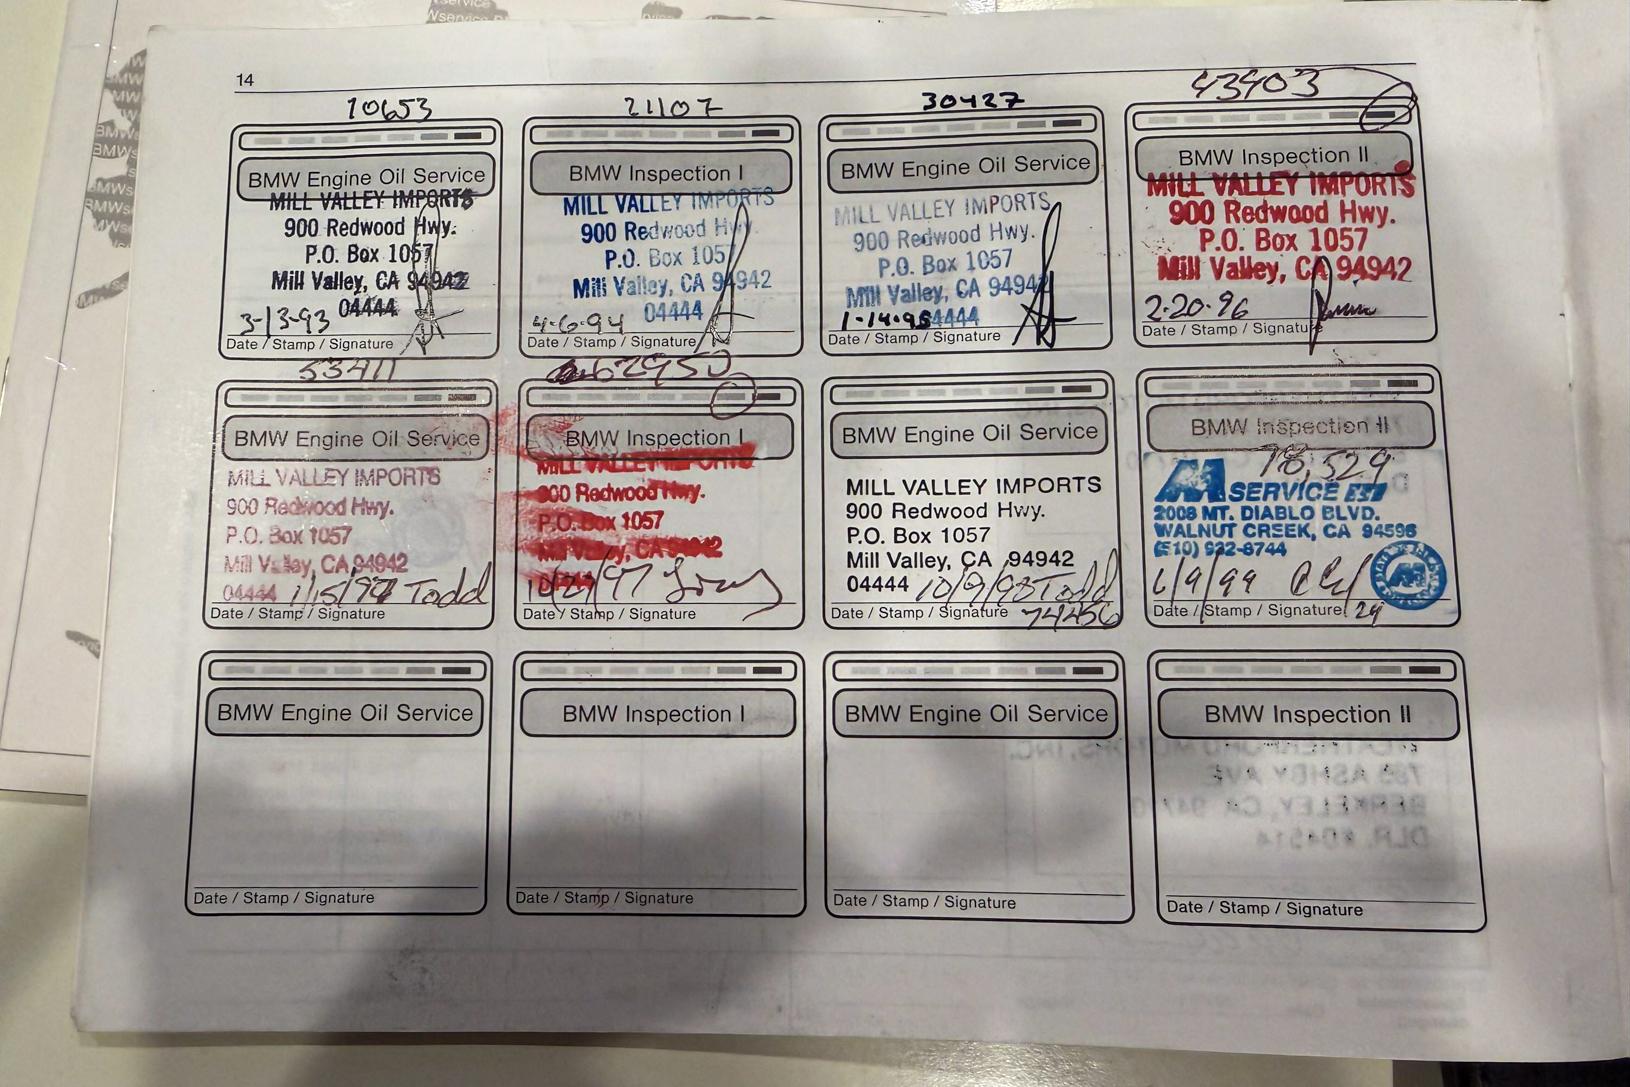 14
10653
BMW Engine Oil Service
MILL VALLEY IMPORTS
900 Redwood Hwy.
P.O. Box 1057
Mill Valley, CA 94942
04444
3-13-93
Date / Stamp / Signature
21107
BMW Inspection I
MILL VALLEY IMPORTS
900 Redwood Hwy.
P.O. Box 1057
Mill Valley, CA 94942
04444
4-6-94
Date / Stamp / Signature
30427
BMW Engine Oil Service
MILL VALLEY IMPORTS
900 Redwood Hwy.
P.O. Box 1057
Mill Valley, CA 94942
1-14-95 4444
Date / Stamp / Signature
43903
BMW Inspection II
MILL VALLEY IMPORTS
900 Redwood Hwy.
P.O. Box 1057
Mill Valley, CA 94942
2-20-96
Date / Stamp / Signature
53411
BMW Engine Oil Service
MILL VALLEY IMPORTS
900 Redwood Hwy.
P.O. Box 1057
Mill Valley, CA 94942
04444 1/15/97 Todd
Date / Stamp / Signature
62950
BMW Inspection I
MILL VALLEY IMPORTS
900 Redwood Hwy.
P.O. Box 1057
Mill Valley, CA 94942
Date / Stamp / Signature
BMW Engine Oil Service
MILL VALLEY IMPORTS
900 Redwood Hwy.
P.O. Box 1057
Mill Valley, CA 94942
04444 10/9/98 Todd
Date / Stamp / Signature 74456
BMW Inspection II
78,529
SERVICE EST
2008 MT. DIABLO BLVD.
WALNUT CREEK, CA 94596
(510) 932-8744
6/9/99
Date / Stamp / Signature
BMW Engine Oil Service
Date / Stamp / Signature
BMW Inspection I
Date / Stamp / Signature
BMW Engine Oil Service
Date / Stamp / Signature
BMW Inspection II
Date / Stamp / Signature